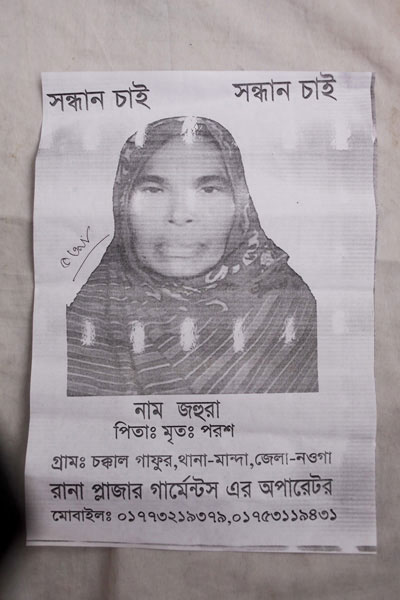 সন্ধান চাই
সন্ধান চাই
নাম জহুরা
পিতাঃ মৃতঃ পরশ
গ্রামঃ চক্কাল গাফুর,থানা-মান্দা,জেলা-নওগা
রানা প্লাজার গার্মেন্টস এর অপারেটর
মোবাইলঃ ০১৭৭৩২১৯৩৭৯,০১৭৫৩১১৯৪৩১